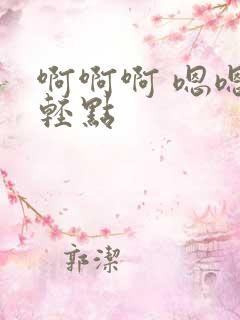 啊啊啊 嗯嗯
輕點
郭潔